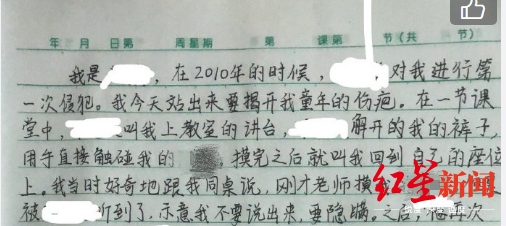 年 月 日第 周星期 第 课第 节(共 节)
我是 ，在2010年的时候， 对我进行第
一次侵犯。我今天站出来要揭开我童年的伤疤。在一节课
堂中， 叫我上教室的讲台， 解开的我的裤子，
用手直接触碰我的 摸完之后就叫我回到自己的座位
上。我当时好奇地跟我同桌说，刚才老师摸我
红星新闻
被 听到了，示意我不要说出来，要隐瞒。之后，他再次